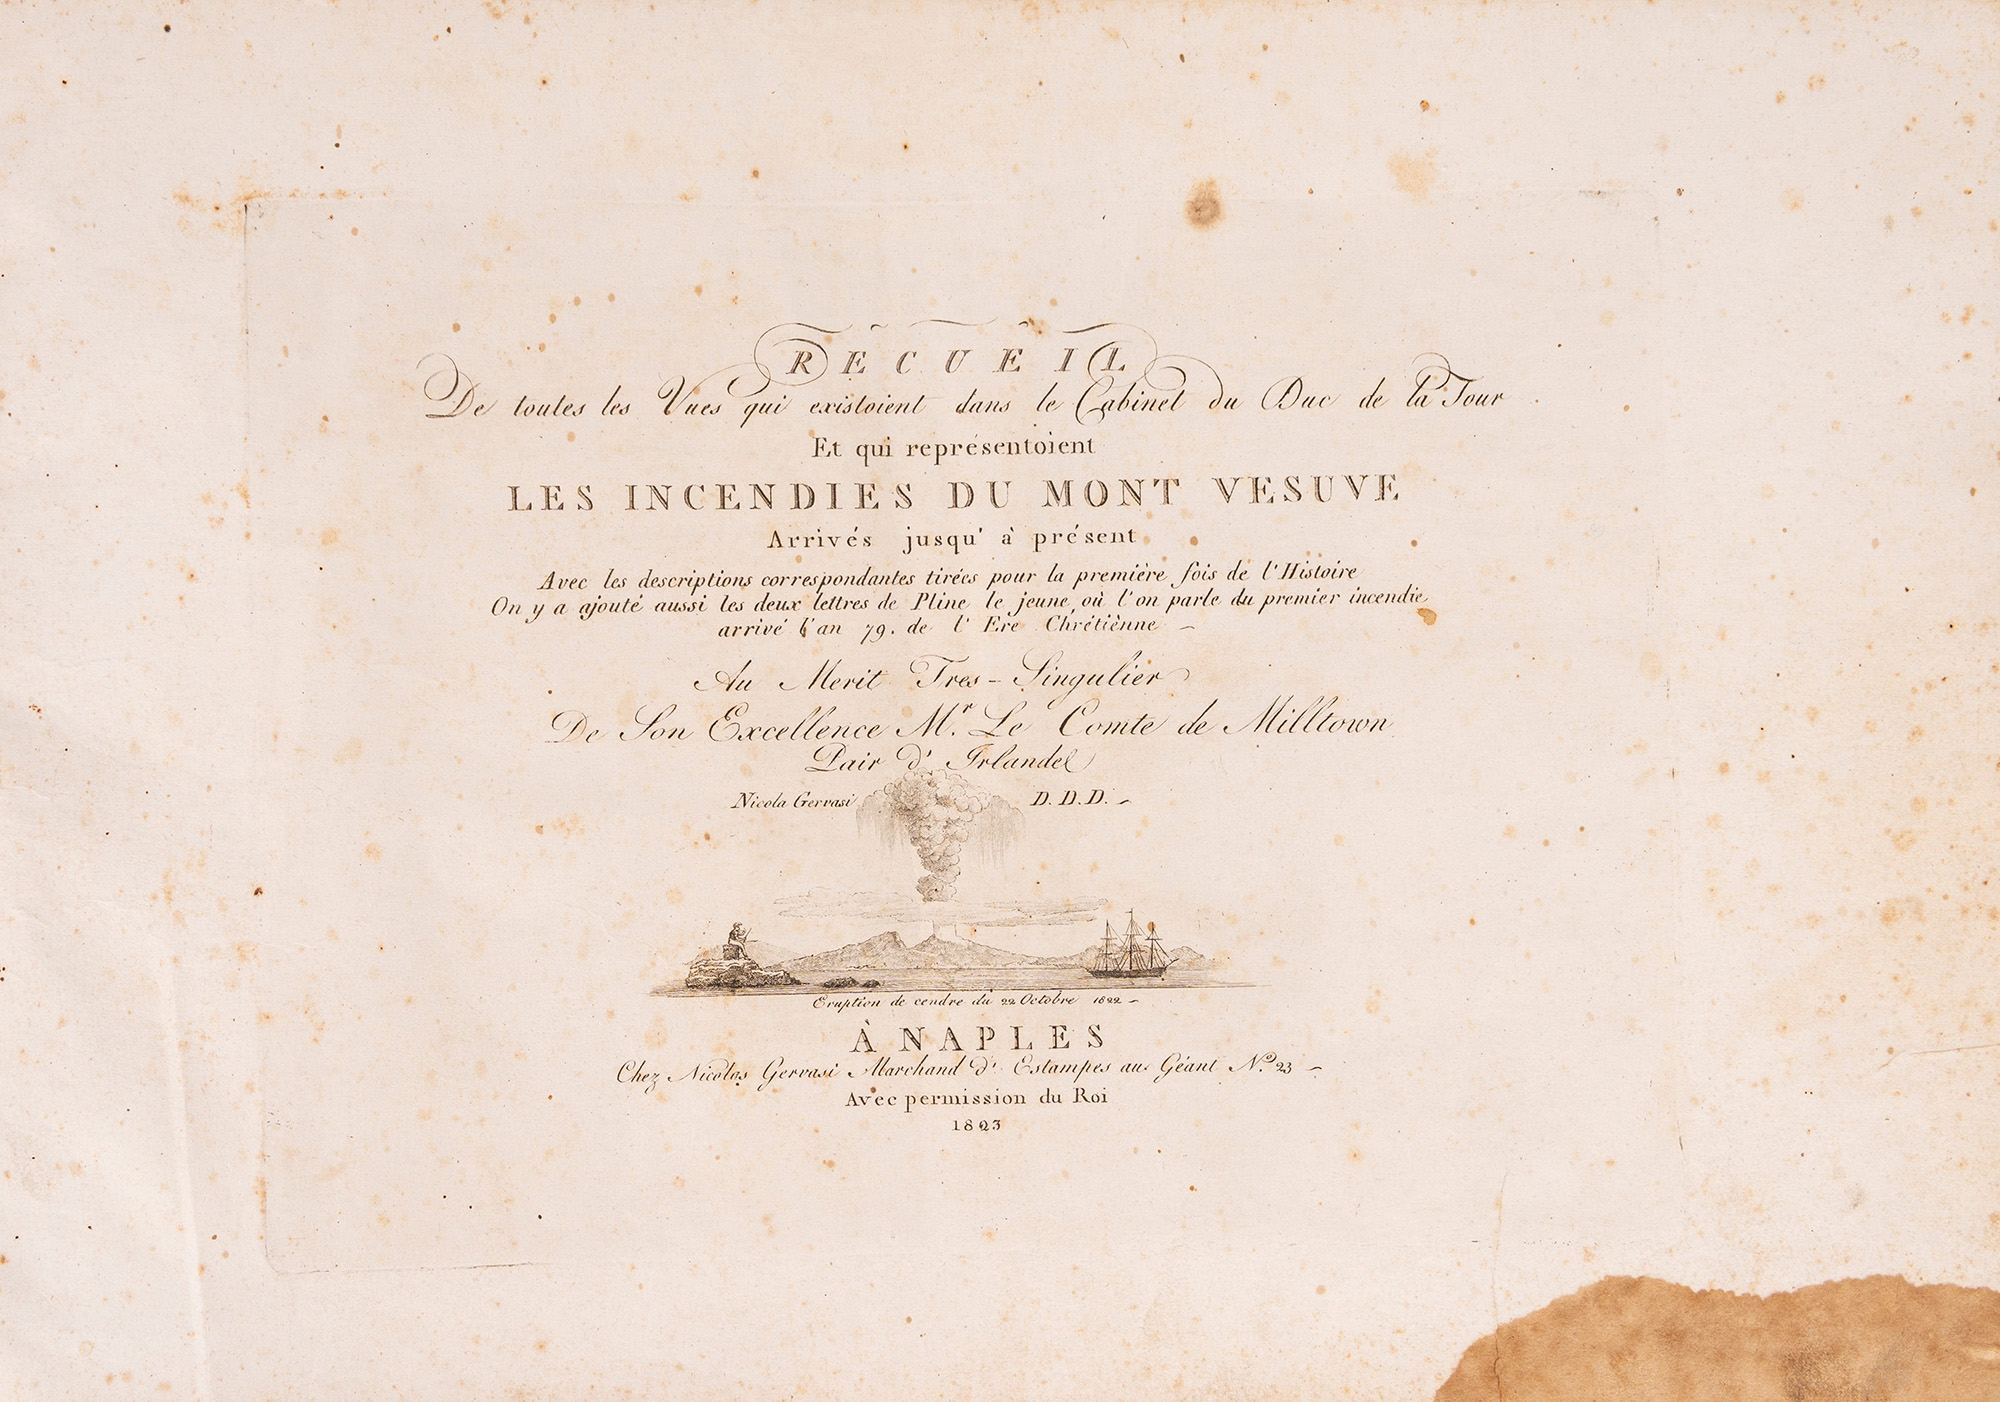 RECUEIL
De toutes les Vues qui existoient dans le Cabinet du Duc de la Tour
Et qui représentoient
LES INCENDIES DU MONT VESUVE
Arrivés jusqu' à présent
Avec les descriptions correspondantes tirées pour la première fois de l'Histoire
On y a ajouté aussi les deux lettres de Pline le jeune, où l'on parle du premier incendie
arrivé l'an 79. de l' Ere Chrétiènne
Au Merit Tres-Singulier
De Son Excellence Mr. Le Comte de Milltown
Pair d' Irlande
Nicola Gervasi D. D. D.
Eruption de cendre du 22 Octobre 1822
À NAPLES
Chez Nicolas Gervasi Marchand d' Estampes au Géant No. 23
Avec permission du Roi
1823